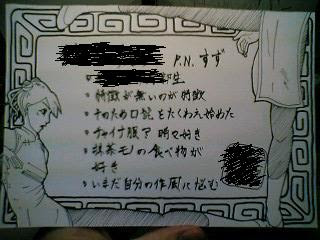 P.N. すず
・ 生
・特徴が無いのが特徴
・そのため口記をたくわえ始めた
・チャイナ服ア 時々好き
・抹茶モノの食べ物が
好き
・いまだ自分の作風に悩む